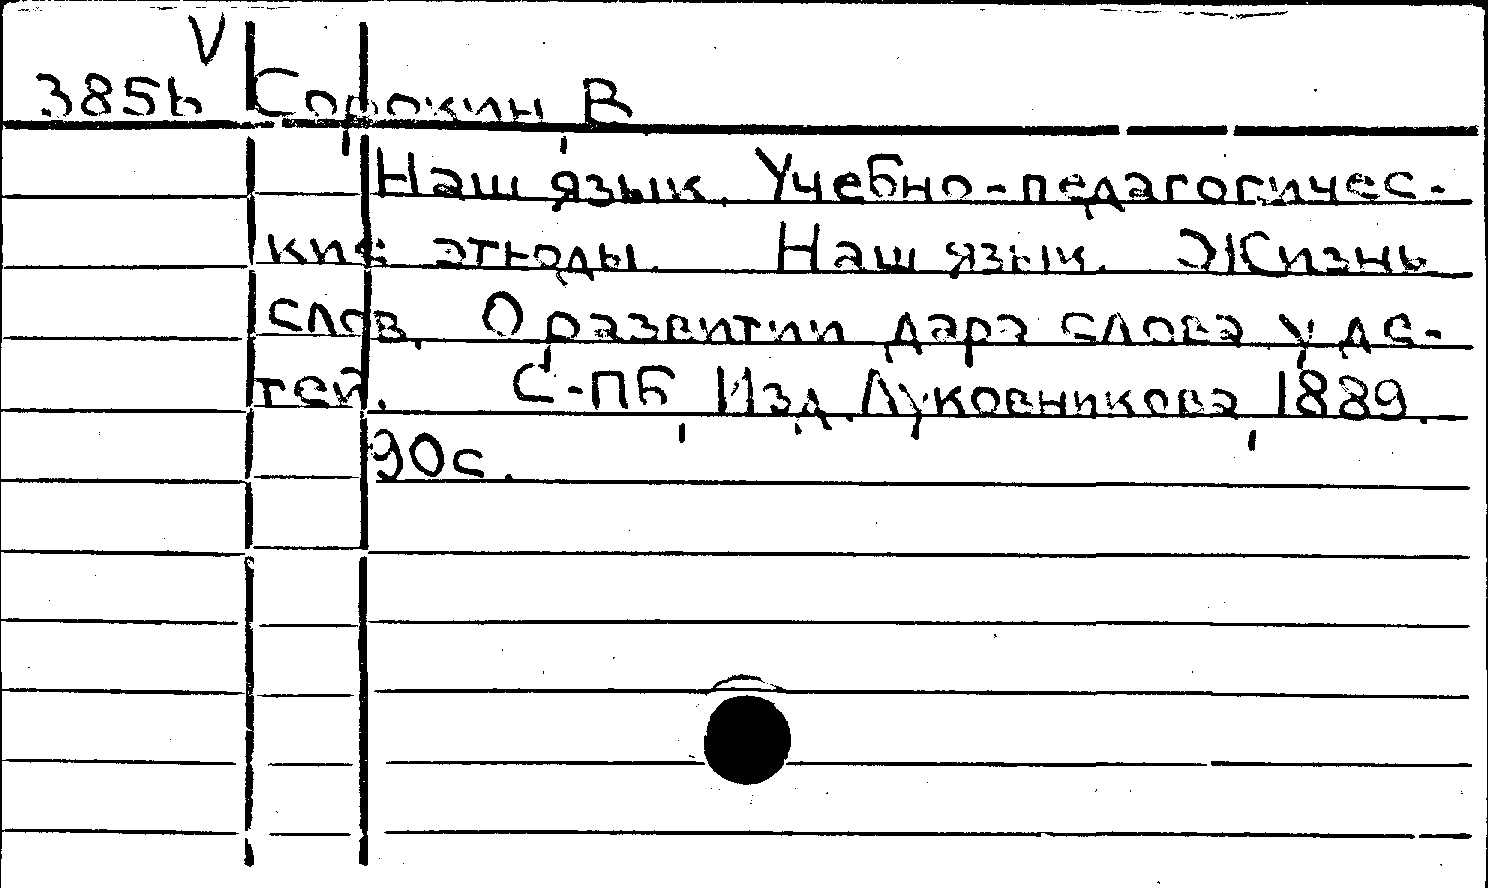 V
385b Сорокин В
Наш язык. Учебно-педагогичес-
кие этюды. Наш язык. Жизнь
слов. О развитии дара слова у де-
тей. С-ПБ, Изд. Луковникова, 1889.
90с.